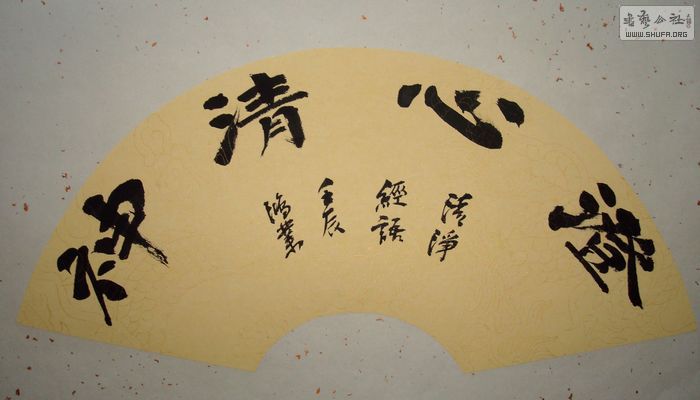 澄心清神
清淨
經語
壬辰
鴻
書藝公社
WWW.SHUFA.ORG